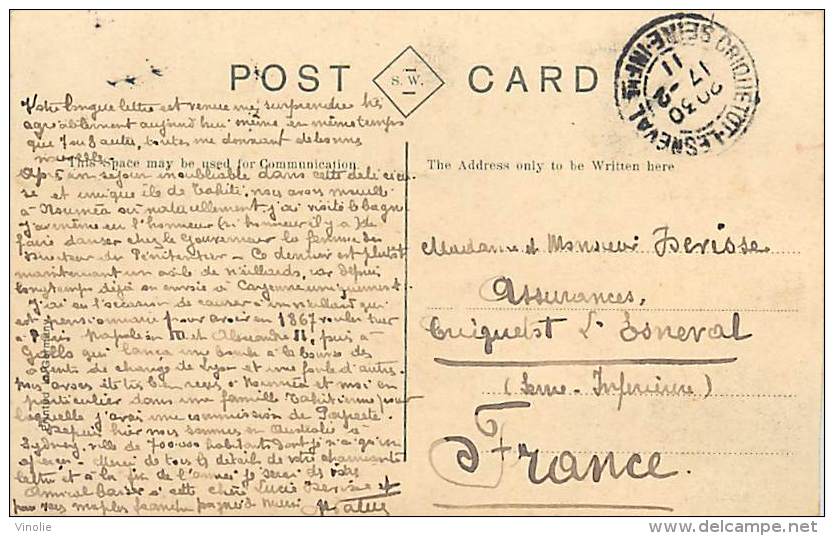 POST S. W. CARD
CRIQUETOT-LESNEVAL
SEINE-INFRE
20 30
17
11
This Space may be used for Communication
The Address only to be Written here
Votre longue lettre est venue me surprendre très
agréablement aujourd'hui même en même temps
que 7 ou 8 autres, toutes me donnant de bonnes
nouvelles.
Après un séjour inoubliable dans cette délicieu
se et unique île de Tahiti, nous avons mouillé
à Nouméa où naturellement j'ai visité le bagne
J'ai même eu l'honneur (si honneur il y a) de
faire danser chez le Gouverneur la femme du
Directeur du Pénitencier - Ce dernier est plutôt
maintenant un asile de vieillards, car depuis
longtemps déjà on envoie à Cayenne uniquement.
J'ai eu l'occasion de causer à un vieillard qui
est pensionnaire pour avoir en 1867 voulu tuer
à Paris Napoléon III et Alexandre II, puis à
Gallo qui lança une bombe à la bourse des
agents de change de Lyon et une foule d'autres.
Nous avons été très bien reçus à Nouméa et moi en
particulier dans une famille Tahitienne pour
laquelle j'avais une commission de Papeete.
Depuis hier nous sommes en Australie à
Sydney, ville de 700.000 habitants dont je n'ai qu'un
aperçu - Merci de tous les détails de votre charmante
lettre et à la fin de l'année je serai des vôtres
Amical baiser à cette chère Lucie
Printed in Germany
Madame et Monsieur Iserisse
Assurances,
Criquetot L'Esneval
(Seine-Inférieure)
France.
Vinolie
www.delcampe.net